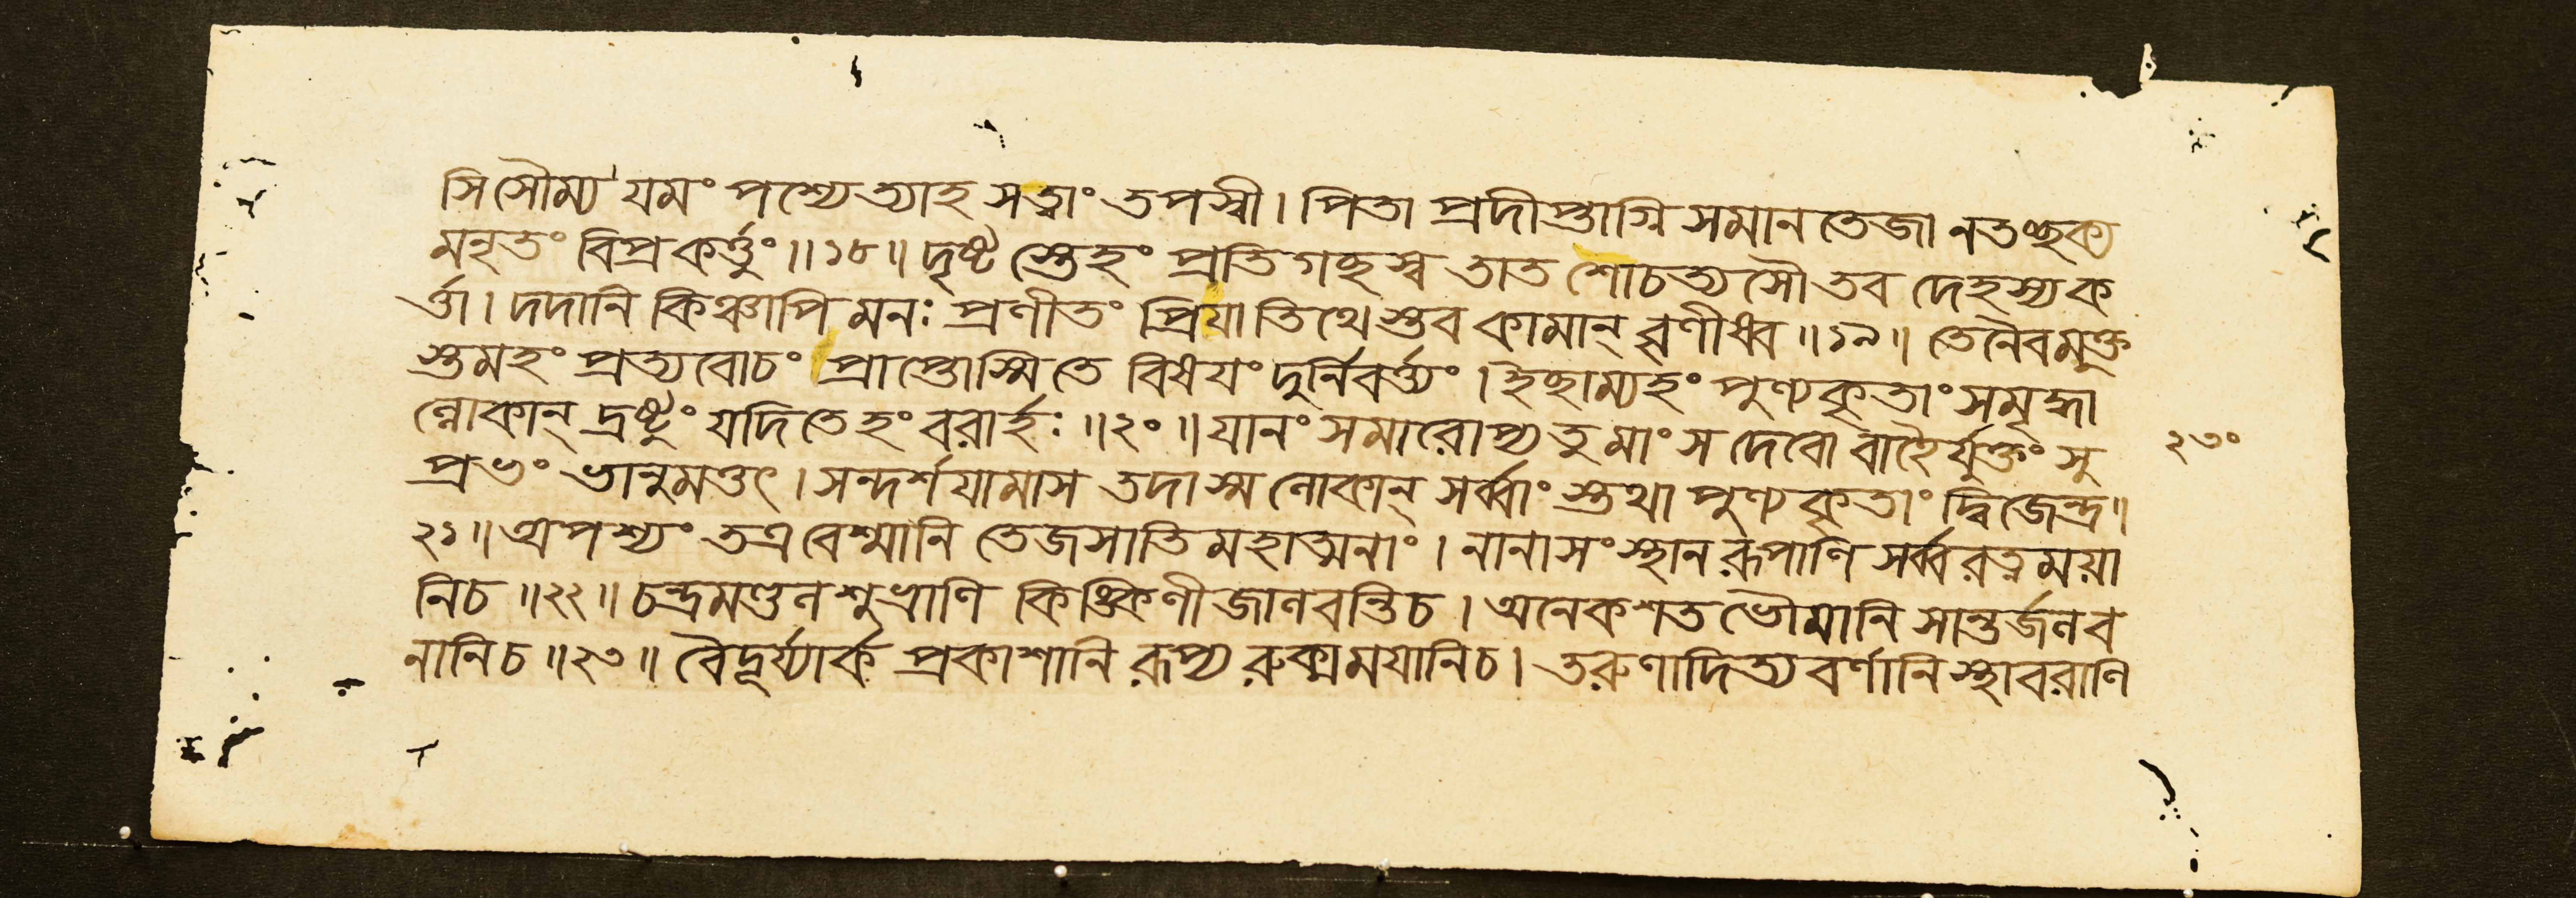 সিসৌম্য যমং পশ্যেত্যাহ সত্বাং তপস্বী। পিতা প্রদীপ্তাগ্নিসমানতেজা নতচ্ছক্য
মনৃতং বিপ্রকর্ত্তুং॥১৮॥ দৃষ্টস্তেহং প্রতিগছস্ব তাত শোচত্যসৌ তব দেহস্যক
র্ত্তা। দদানি কিঞ্চাপি মনঃ প্রণীতং প্রিয়াতিথেস্তব কামান্ বৃণীষ্ব॥১৯॥ তেনৈবমুক্ত
স্তমহং প্রত্যবোচং প্রাপ্তোস্মি তে বিষয়ং দুর্নিবর্ত্ত্যং। ইছাম্যহং পুণ্যকৃতাং সমৃদ্ধা
ল্লোকান্ দ্রষ্টুং যদি তেহং বরার্হঃ॥২০॥ যানং সমারোপ্য তু মাং স দেবো বাহৈর্যুক্তং সু
প্রভং ভানুমত্তৎ। সন্দর্শয়ামাস তদাস্ম লোকান্ সর্ব্বাংস্তথা পুণ্যকৃতাং দ্বিজেন্দ্র॥
২১॥ অপশ্যং তত্র বেশ্মানি তেজসাতি মহাত্মনাং। নানাসংস্থানরূপাণি সর্ব্বরত্নময়া
নিচ॥২২॥ চন্দ্রমণ্ডলশুভ্রাণি কিঙ্কিণীজালবন্তিচ। অনেকশতভৌমানি সান্তর্জলব
নানিচ॥২৩॥ বৈদূর্য্যার্কপ্রকাশানি রূপ্যরুক্মময়ানিচ। তরুণাদিত্যবর্ণানি স্থাবরাণি
২৩০